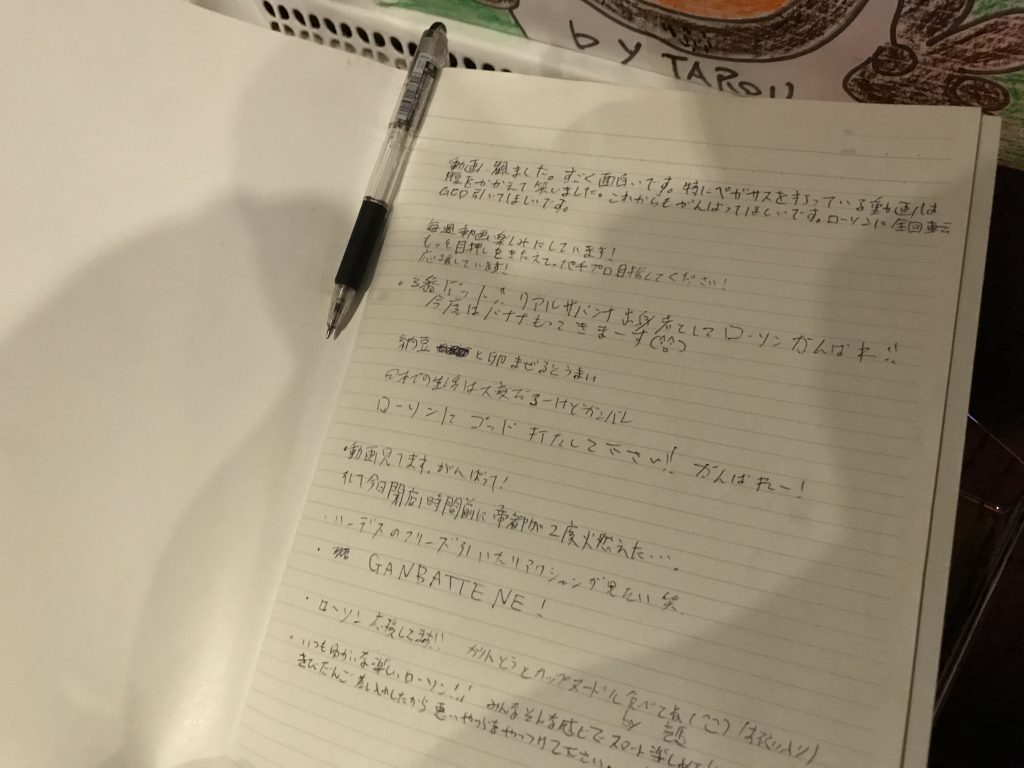 by TAROU
動画 観ました。すごく面白いです。特にペガサスをすっている動画は
腹をかかえて笑いました。これからもがんばってほしいです。ローソンに全回転
GOD引いてほしいです。
毎週動画楽しみにしています!
もっと目押しをきたえて、パチプロ目指してください!
応援しています!
・3番ドット リアルサバンナ出身者としてローソンがんばれ!!
今度はバナナもってきまーす(^^)
納豆 と卵まぜるとうまい
での生活は大変だろーけどガンバレ
ローソンにゴッド 打たして下さい!! がんばれー!
・動画見てます。がんばって!
今日閉店1時間前に帝都が2度火燃えた…。
・ハーデスのフリーズ引いたリアクションが見たい笑
・ GANBATTE.NE!
・ローソン応援してます!! かりんとうとカップヌードル食べてね(ここ)
by
・いつもゆかいな楽しいローソン!! みんなそんな感じでスロット楽しめて
きびだんご差し入れしたから悪いやつらをやっつけて下さい。